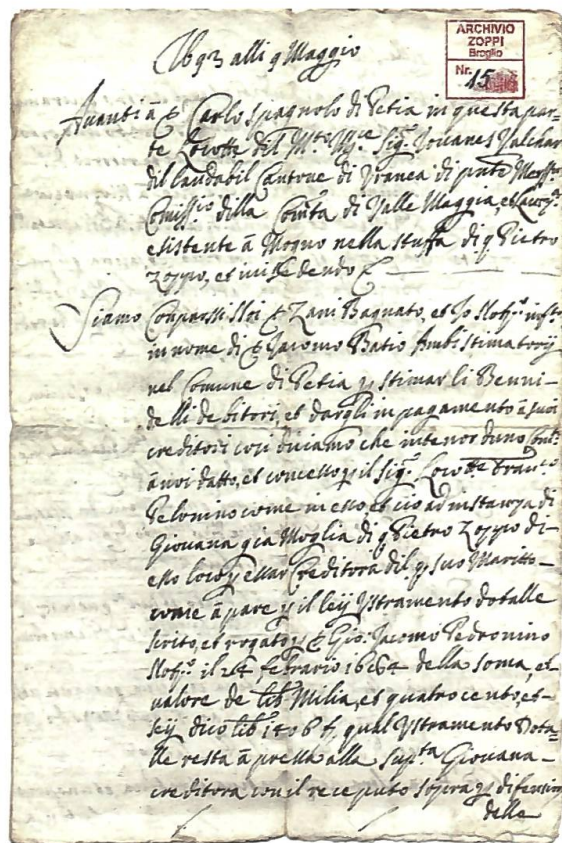 ARCHIVIO
ZOPPI
Broglio
Nr. 15
alli 9 Maggio
Avanti à Carlo Spagnolo di Petia in questa par=
te Locotte dil Sig. Jouanes
dil laudabil Cantone di Vranea di pnte
Comissio dilla Comta di Valle Maggia, et
esistente à Mogno nella stuffa di q Pietro
Zoppo, et
Siamo Comparssi Noi Zani Bagnato, et Jo Notro
in nome di Jacomo Batio Ambi stimatorij
nel Comune di Petia p stimar li Benni-
delli debitori, et dargli in pagamento à suoi
creditori cosi diciamo che in tenor duno
à noi datto, et concesso p il Sig. Locotte Franco
Pelonino come in esso, et cio ad instanza di
Giouana gia Moglia di q Pietro Zoppo di-
esso loco p essar Creditora dil q suo Maritto-
come à pare p il leij Ystramento dotalle
scrito, et rogato p Gio: Jacomo Pedronino
Notro il 24 febrario 1664 della soma, et
valore de lib Milia, et quatro cento, et-
seij dico lib 1406 qual Ystramento Dota=
lle resta à pressa alla supta Giouana-
creditora con il receputo sopra
delle